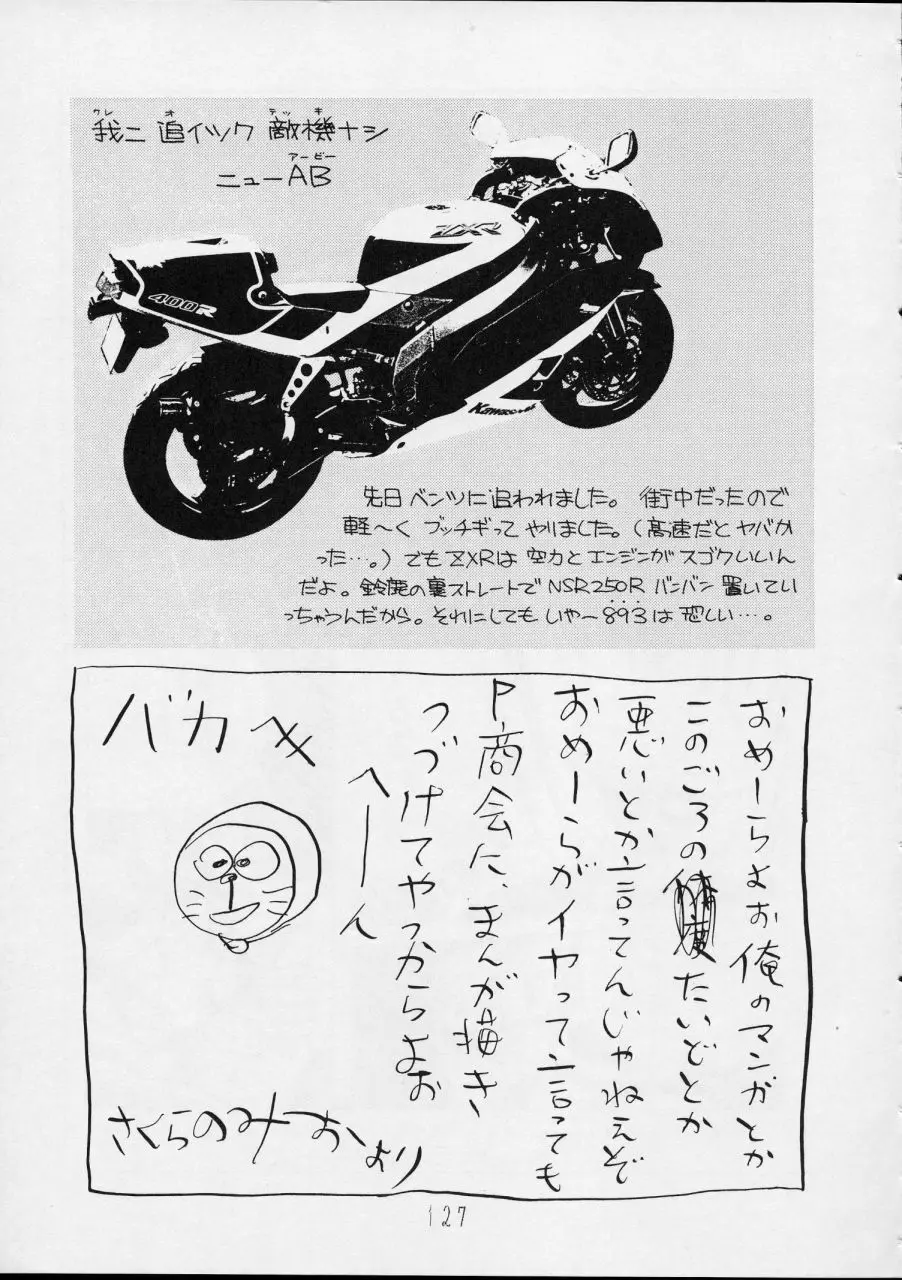 我ニ 追イツク 敵機ナシ
ワレ オ テッキ
ニューAB
アービー
ZXR
400R
Kawasaki
先日 ベンツに追われました。 街中だったので
軽〜く ブッチギって やりました。(高速だと ヤバか
った…。) でも ZXRは 空力と エンジンが スゴクいいん
だよ。鈴鹿の裏ストレートで NSR250R バンバン 置いてい
っちゃうんだから。それにしても いやー893は 恐しい…。
おめーらよお俺のマンガとか
このごろの たいどとか
悪いとか言ってんじゃねえぞ
おめーらがイヤって言っても
P.商会に、まんが描き
つづけてやっからよお
へーん
バカめ
さくらのみおより
127